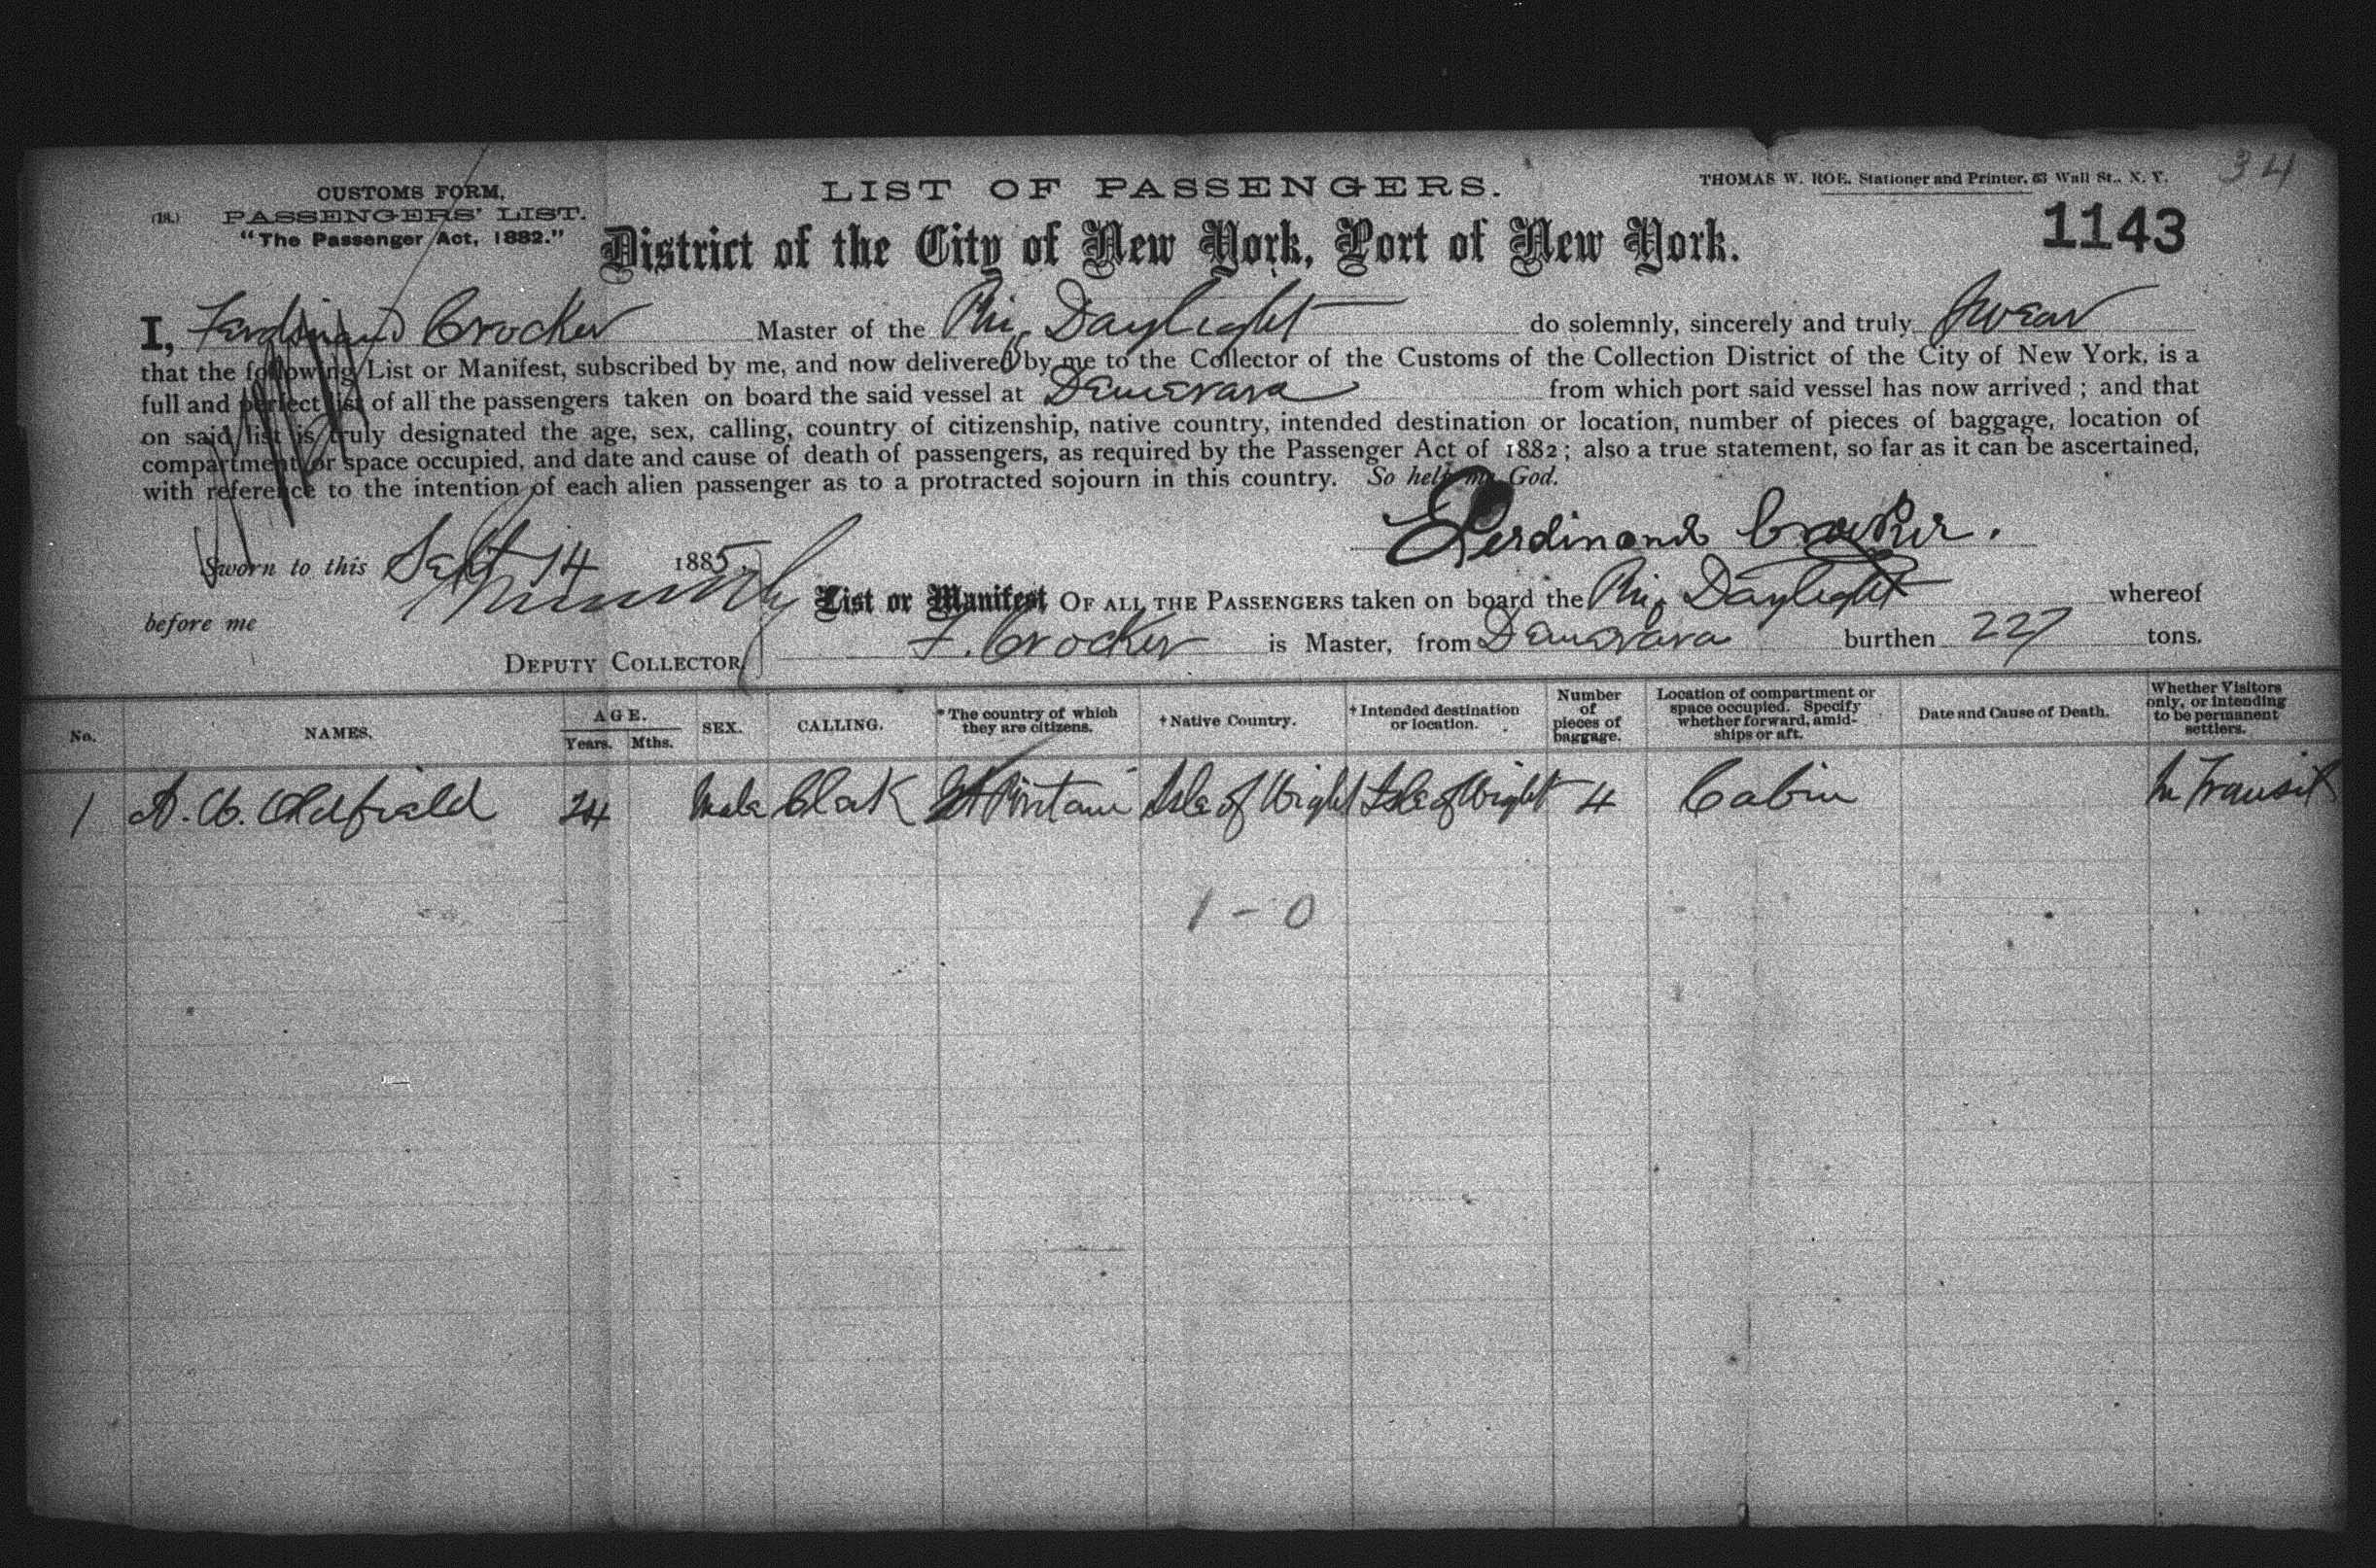 34
CUSTOMS FORM,
(18.) PASSENGERS' LIST.
"The Passenger Act, 1882."
LIST OF PASSENGERS.
THOMAS W. ROE, Stationer and Printer, 63 Wall St., N. Y.
1143
District of the City of New York, Port of New York.
I, Ferdinand Crocker Master of the Brig Daylight do solemnly, sincerely and truly swear
that the following List or Manifest, subscribed by me, and now delivered by me to the Collector of the Customs of the Collection District of the City of New York, is a
full and perfect list of all the passengers taken on board the said vessel at Demerara from which port said vessel has now arrived ; and that
on said list is truly designated the age, sex, calling, country of citizenship, native country, intended destination or location, number of pieces of baggage, location of
compartment or space occupied, and date and cause of death of passengers, as required by the Passenger Act of 1882 ; also a true statement, so far as it can be ascertained,
with reference to the intention of each alien passenger as to a protracted sojourn in this country. So help me God.
Ferdinand Crocker.
Sworn to this Sept 14 1885
before me
DEPUTY COLLECTOR
List or Manifest OF ALL THE PASSENGERS taken on board the Brig Daylight whereof
F. Crocker is Master, from Demerara burthen 227 tons.
No. NAMES. AGE. Years. Mths. SEX. CALLING. * The country of which they are citizens. + Native Country. + Intended destination or location. Number of pieces of baggage. Location of compartment or space occupied. Specify whether forward, amidships or aft. Date and Cause of Death. Whether Visitors only, or intending to be permanent settlers.
1 A. W. Oldfield 24 Male Clerk Gt Britain Isle of Wight Isle of Wight 4 Cabin In Transit
1 - 0